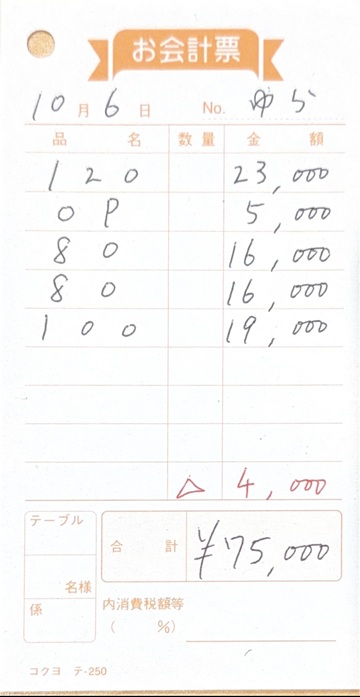 お会計票
10月6日 No. ゆら
品名 数量 金額
120 23,000
OP 5,000
80 16,000
80 16,000
100 19,000
△ 4,000
テーブル
名様
係
合計 ¥75,000
内消費税額等
( %)
コクヨ テ-250